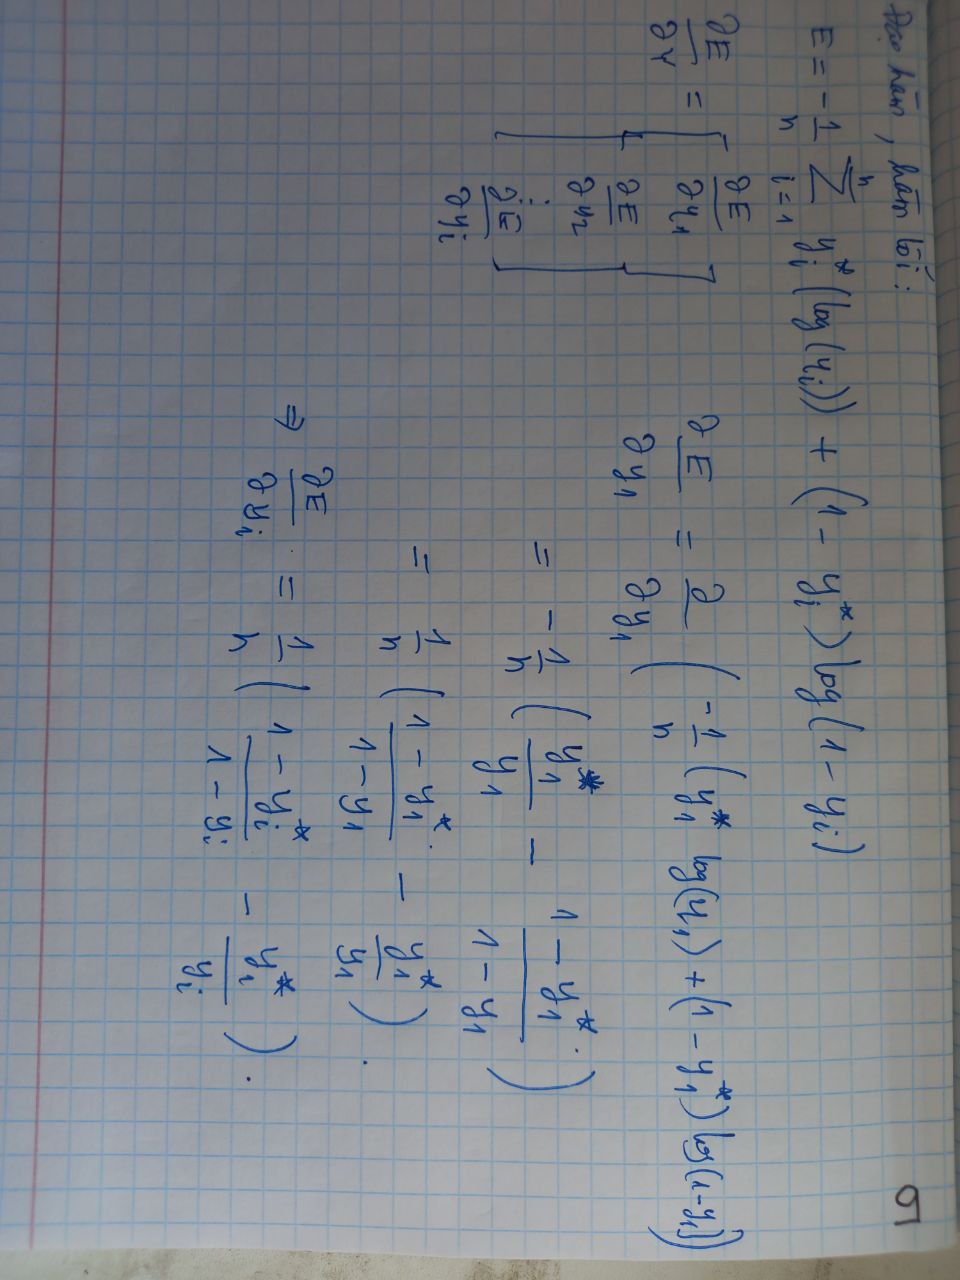 Đạo hàm, hàm lỗi:
6
E = -1/n \sum_{i=1}^{n} y_i^* (log(y_i)) + (1 - y_i^*) log(1 - y_i)
∂E/∂Y = [ ∂E/∂y_1 ∂E/∂y_2 ⋮ ∂E/∂y_i ]
∂E/∂y_1 = ∂/∂y_1 ( -1/n ( y_1^* log(y_1) + (1 - y_1^*) log(1-y_1) ) )
= -1/n ( y_1^*/y_1 - (1 - y_1^*)/(1 - y_1) )
= 1/n ( (1 - y_1^*)/(1 - y_1) - y_1^*/y_1 ) .
⇒ ∂E/∂y_i = 1/n ( (1 - y_i^*)/(1 - y_i) - y_i^*/y_i ) .